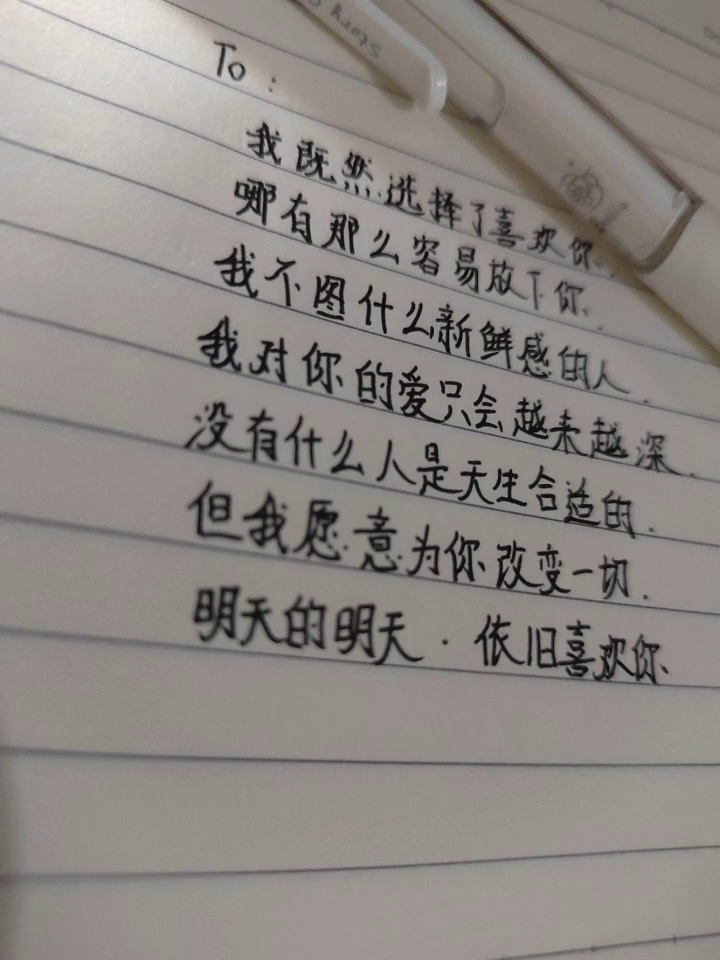 story
To：
我既然选择了喜欢你.
哪有那么容易放下你.
我不图什么新鲜感的人.
我对你的爱只会越来越深.
没有什么人是天生合适的.
但我愿意为你改变一切.
明天的明天.依旧喜欢你